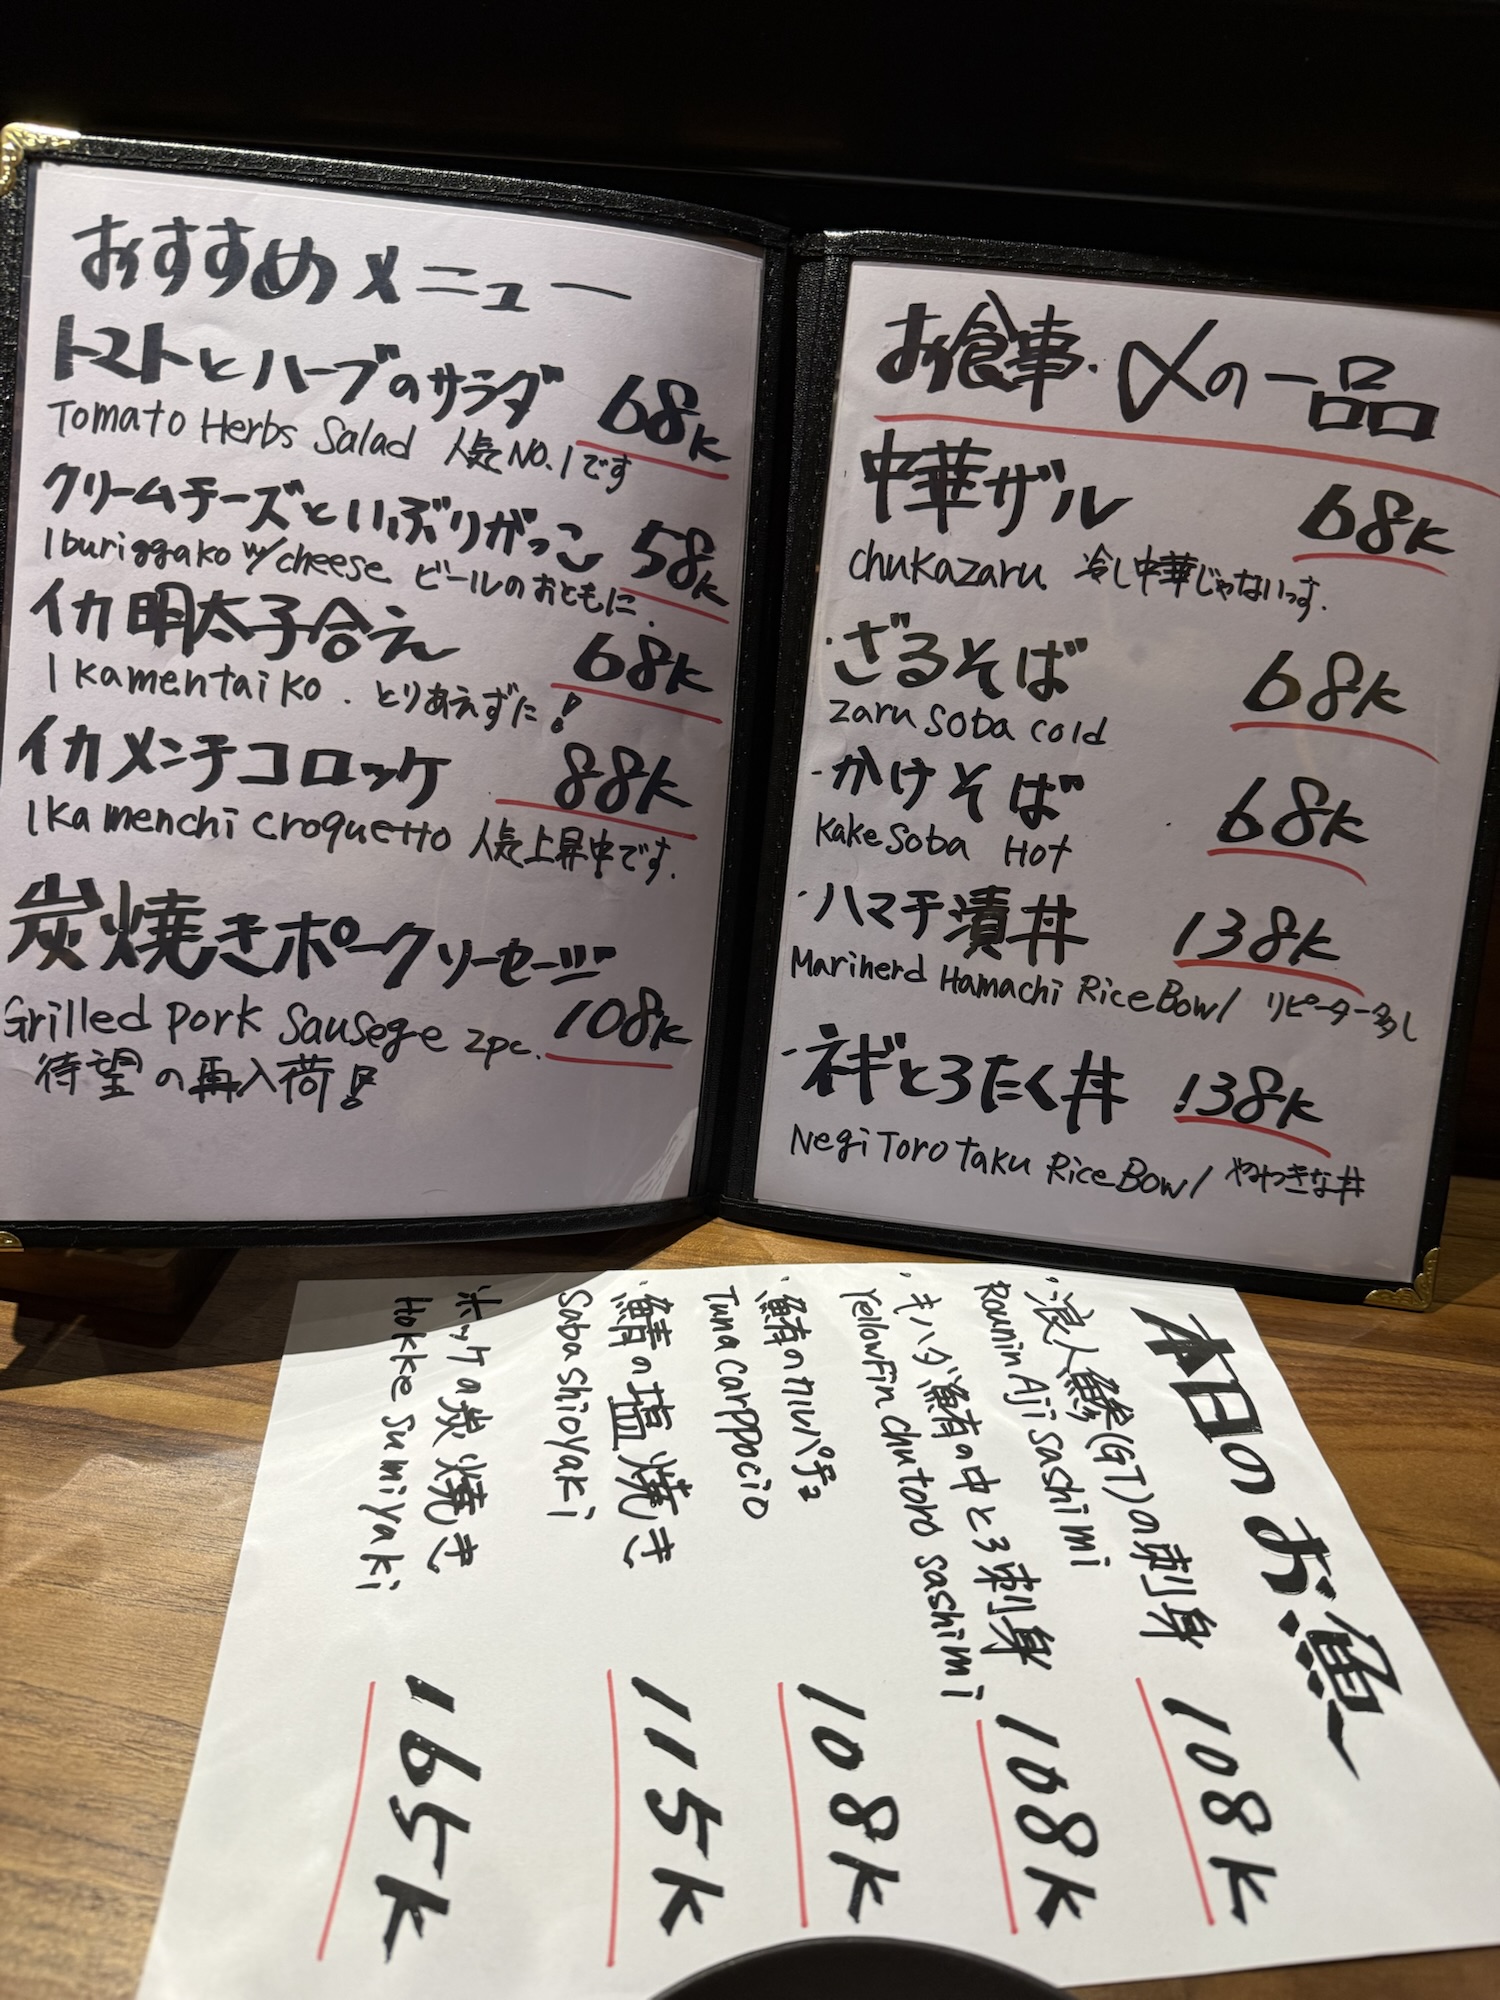 おすすめメニュー
トマトとハーブのサラダ 68k
Tomato Herbs Salad 人気NO.1です
クリームチーズといぶりがっこ 58k
Iburiggako w/cheese ビールのおともに.
イカ明太子合え 68k
Ikamentaiko. とりあえずに!
イカメンチコロッケ 88k
Ika menchi croquetto 人気上昇中です.
炭焼きポークソーセージ
Grilled pork sausege 2pc. 108k
待望の再入荷!
お食事・〆の一品
中華ザル 68k
chukazaru 冷し中華じゃないっす.
・ざるそば 68k
zaru soba cold
・かけそば 68k
kake soba Hot
・ハマチ漬丼 138k
Marinerd Hamachi Rice Bowl リピーター多し
・ネギとろたく丼 138k
Negi Toro taku Rice Bowl やみつきな丼
本日のお魚
・浪人鰺(GT)の刺身 108k
Rounin Aji sashimi
・キハダ鮪の中とろ刺身 108k
Yellowfin chutoro sashimi
・鮪のカルパチョ 108k
Tuna carppocio
・鯖の塩焼き 115k
Saba shioyaki
ホッケの炭焼き 165k
Hokke sumiyaki